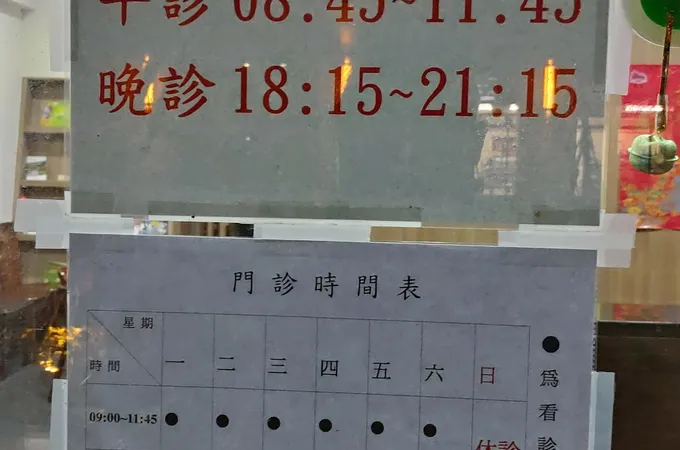 診 08:45~11:45
晚診 18:15~21:15
門診時間表
星期
時間
一 二 三 四 五 六 日
09:00~11:45 ● ● ● ● ● ● 休診
●為看診